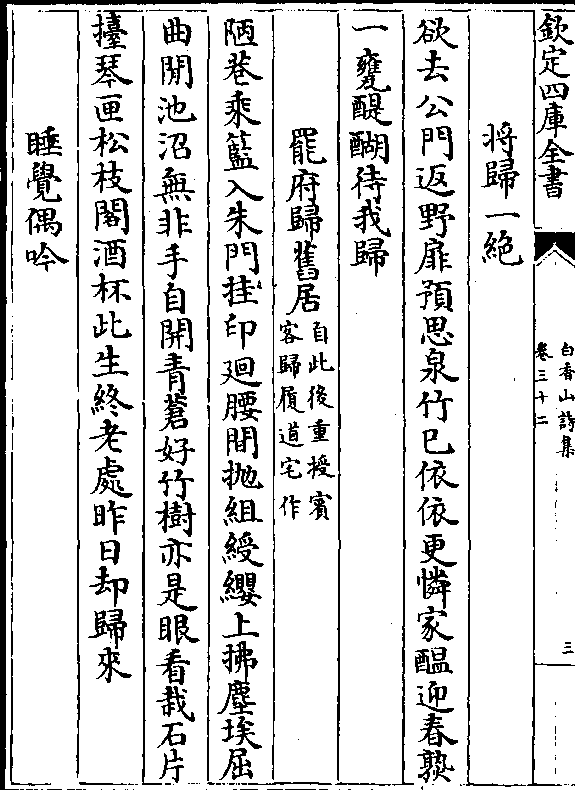 欽定四庫全書
白香山詩集
卷三十二
三
将歸一絶
欲去公門返野扉預思泉竹已依依更憐家醖迎春熟
一甕醍醐待我歸
罷府歸舊居
自此後重授賓
客歸履道宅作
陋巷乘籃入朱門挂印廻腰間抛組綬纓上拂塵埃屈
曲閒池沼無非手自開青蒼好竹樹亦是眼看栽石片
擡琴匣松枝閣酒杯此生終老處昨日却歸來
睡覺偶吟